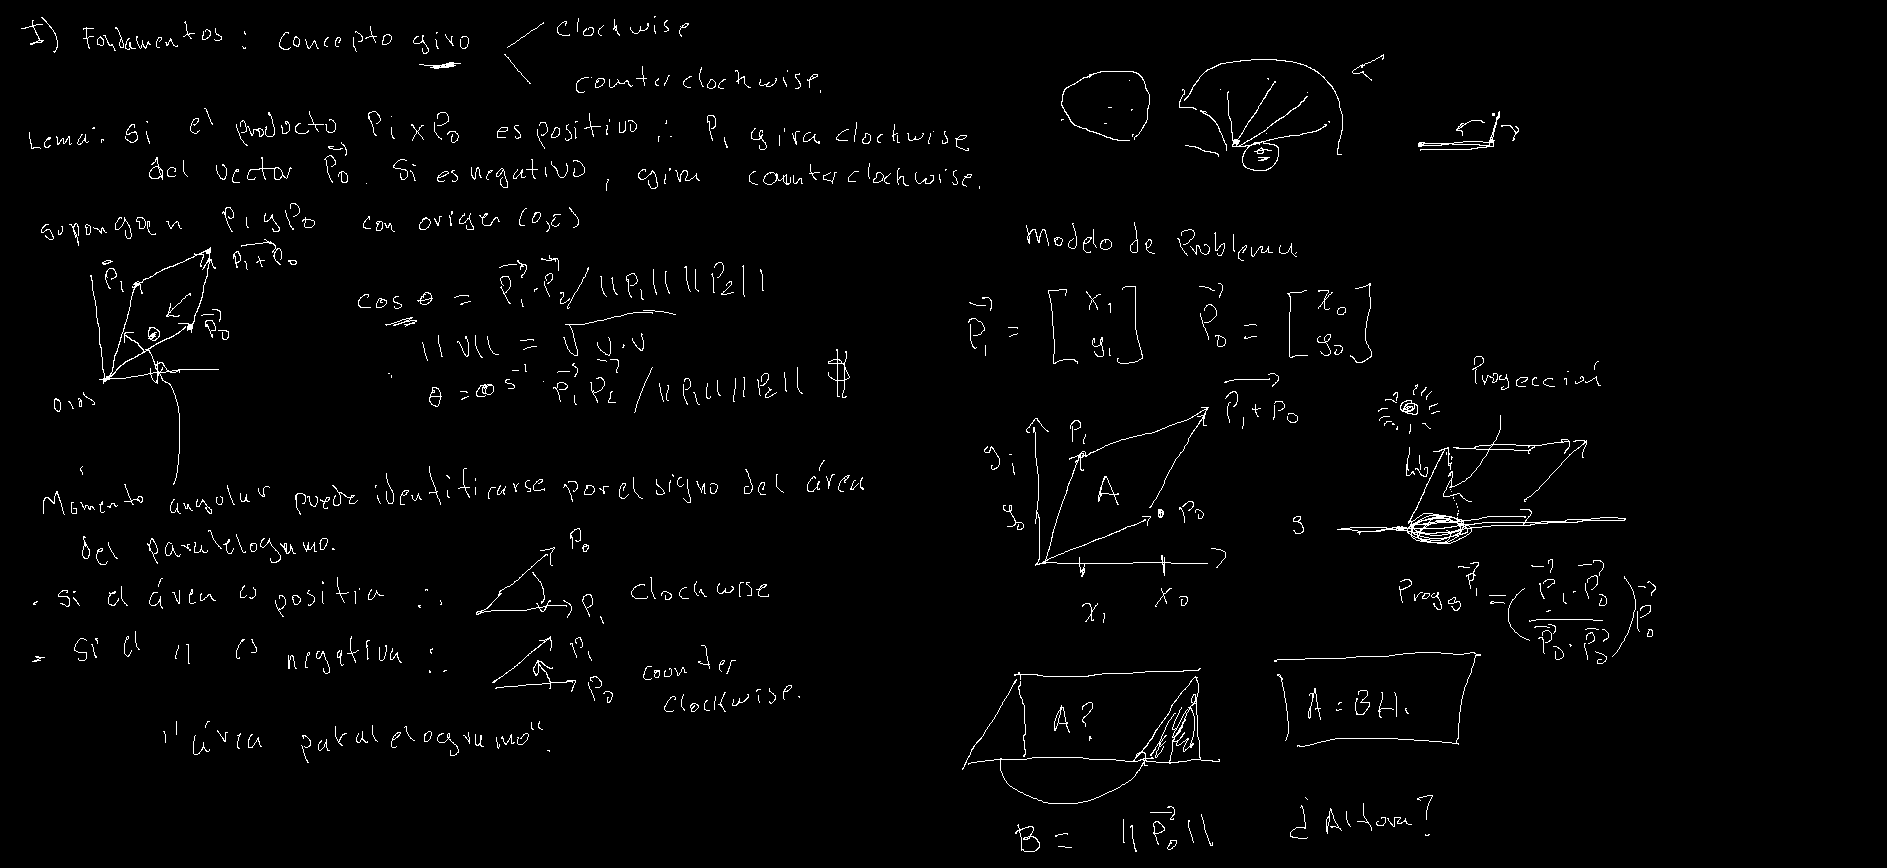 I) Fundamentos : concepto giro
clockwise
counterclockwise.
Lema: Si el producto P1 x P0 es positivo ∴ P1 gira clockwise
del vector P0. Si es negativo, gira counterclockwise.
supongan P1 y P0 con origen (0,0)
P1
P1+P0
P0
θ
cos θ = P1·P2 / ||P1|| ||P2||
||v|| = √v·v
θ = cos⁻¹ P1·P2 / ||P1|| ||P2||
Momento angular puede identificarse por el signo del área
del paralelogramo.
- Si el área es positiva ∴ P0 P1 clockwise
- Si el 11 es negativa ∴ P1 P0 counter
clockwise.
"área paralelogramo".
θ
Modelo de Problema
P1 = [x1 y1] P0 = [x0 y0]
P1+P0
P1
A
P0
y1
y0
x1
x0
Proyección
Luz
Proy P1 = (P1·P0 / P0·P0) P0
A?
A = BH.
B = ||P0||
¿Altura?